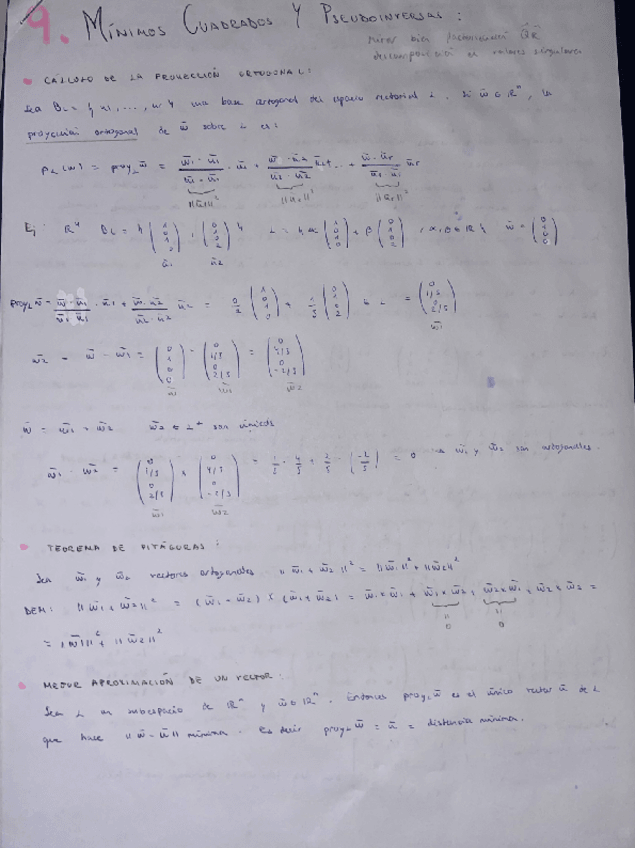 9. MÍNIMOS CUADRADOS Y PSEUDOINVERSAS:
mirar bien factorización QR
descomposición en valores singulares
• CÁLCULO DE LA PROYECCIÓN ORTOGONAL:
Sea B_L = { u1, ..., ur } una base ortogonal del espacio vectorial L. Si w̄ ∈ ℝⁿ, la
proyección ortogonal de w̄ sobre L es:
P_L(w) = proy_L w̄ = (w̄ · ū1)/(ū1 · ū1) · ū1 + (w̄ · ū2)/(ū2 · ū2) ū2 + ... + (w̄ · ūr)/(ūr · ūr) ūr
||ū1||² ||ū2||² ||ūr||²
Ej: ℝ⁴
proy_L w̄ = (w̄ · ū1)/(ū1 · ū1) · ū1 + (w̄ · ū2)/(ū2 · ū2) ū2 = 0/2
w̄2 = w̄ - w̄1 =
w̄ = w̄1 + w̄2 w̄2 ∈ L⊥ son únicos
w̄1 · w̄2 = = 1/5 · 4/5 + 2/5 · (-2/5) = 0 → w̄1 y w̄2 son ortogonales.
• TEOREMA DE PITÁGORAS:
Sea w̄1 y w̄2 vectores ortogonales ||w̄1 + w̄2||² = ||w̄1||² + ||w̄2||²
DEM: ||w̄1 + w̄2||² = (w̄1 + w̄2) × (w̄1 + w̄2) = w̄1 × w̄1 + w̄1 × w̄2 + w̄2 × w̄1 + w̄2 × w̄2 =
= ||w̄1||² + ||w̄2||²
• MEJOR APROXIMACIÓN DE UN VECTOR:
Sea L un subespacio de ℝⁿ y w̄ ∈ ℝⁿ. Entonces proy_L w̄ es el único vector ū de L
que hace ||w̄ - ū|| mínima. Es decir proy_L w̄ = ū = distancia mínima.